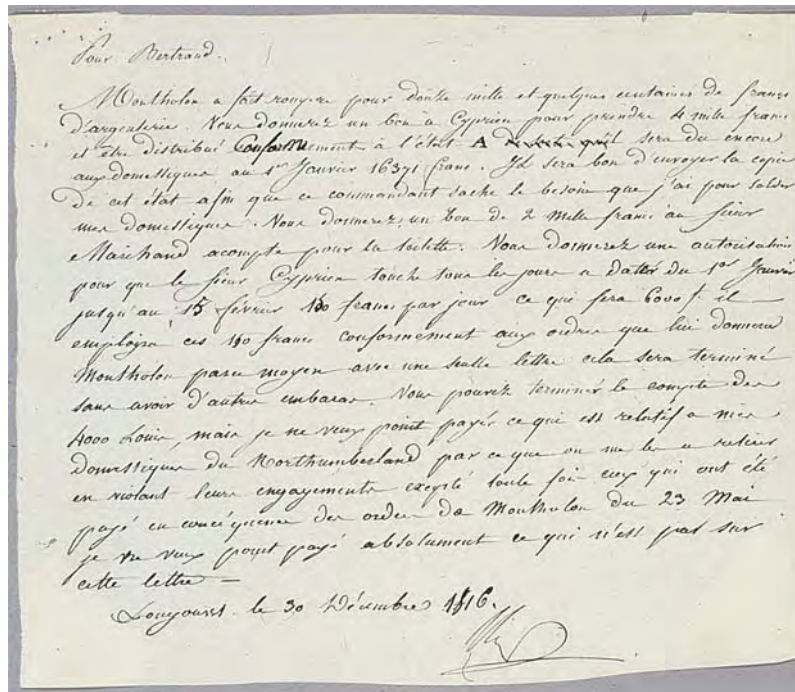 Pour Bertrand.
Montholon a fait rompre pour douze mille et quelques centaines de francs
d'argenterie. Vous donnerez un bon a Cyprien pour prendre 4 mille francs
et être distribué conformement à l'état A sera du encore
aux domestiques au 1er Janvier 16371 francs. Il sera bon d'envoyer la copie
de cet état afin que ce commandant sache le besoin que j'ai pour solder
mes domestiques. Vous donnerez un bon de 2 mille francs au sieur
Marchand acompte pour la toilette. Vous donnerez une autorisation
pour que le sieur Cyprien touche tous les jours a datter du 1er Janvier
jusqu'au 15 février 150 francs par jour ce qui fera 6000 f. il
employra ces 150 francs conformement aux ordres que lui donnera
Montholon par ce moyen avec une seulle lettre cela sera terminé
sans avoir d'autres embaras. Vous pouvez terminer le compte des
4000 Louis, mais je ne veux point payer ce qui est relatif a mes
domestiques du Northumberland par ce que on me les a retirer
en violant leurs engagements excepté toute fois ceux qui ont été
payé en conséquence des ordres de Montholon du 23 Mai
je ne veux point payé absolument ce qui n'est pas sur
cette lettre —
Longwood le 30 Décembre 1816.